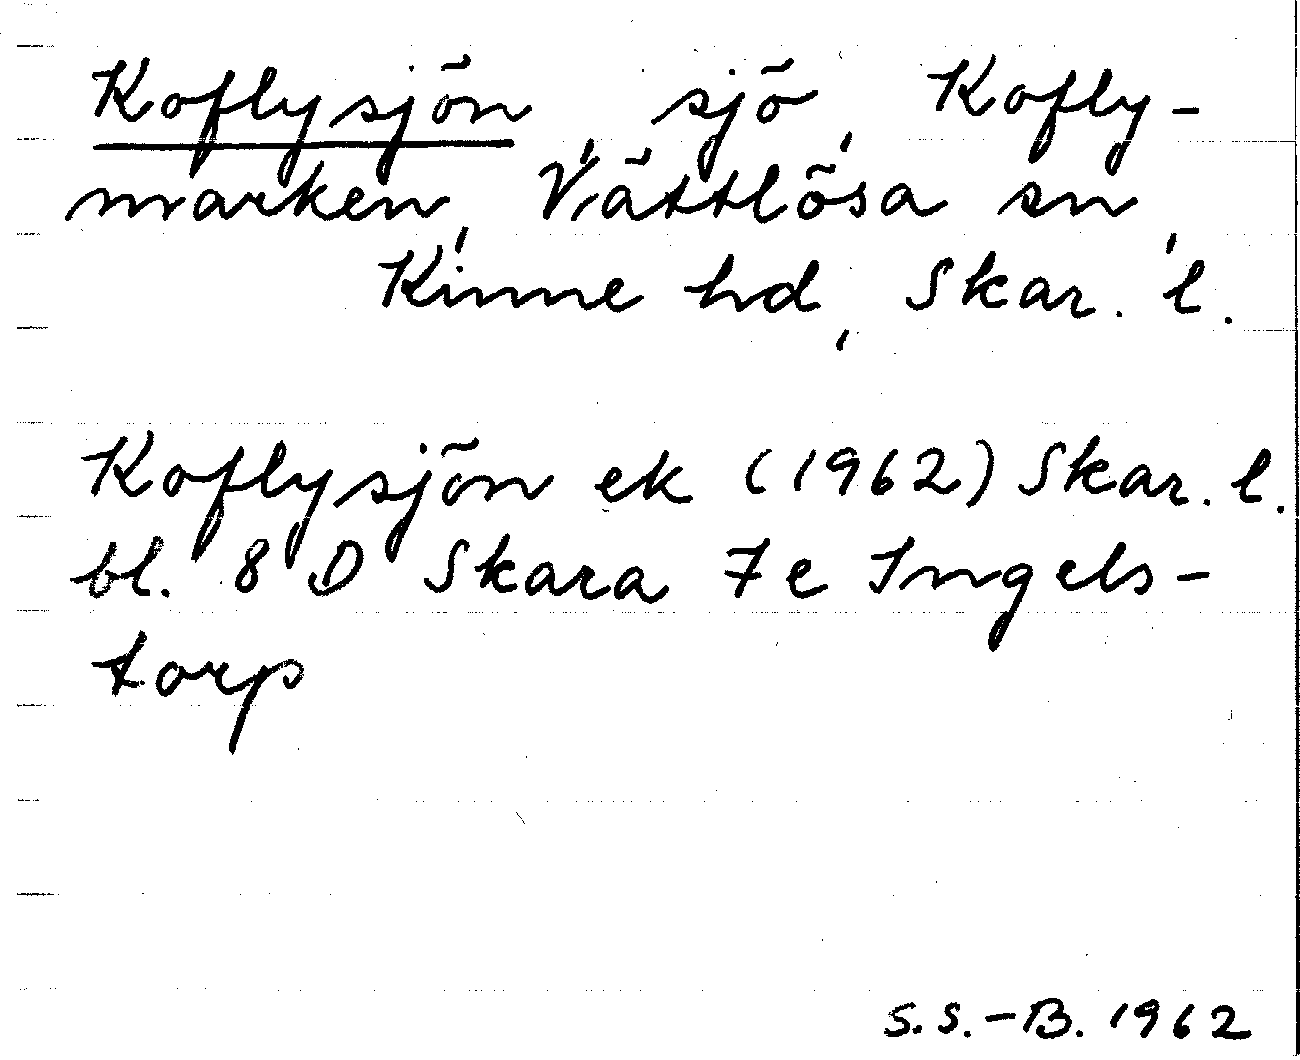 Koflysjön, sjö, Kofly-
marken, Vättlösa sn,
Kinne hd, Skar. l.
Koflysjön ek (1962) Skar. l.
bl. 8 D Skara 7e Ingels-
torp
S.S.-B. 1962